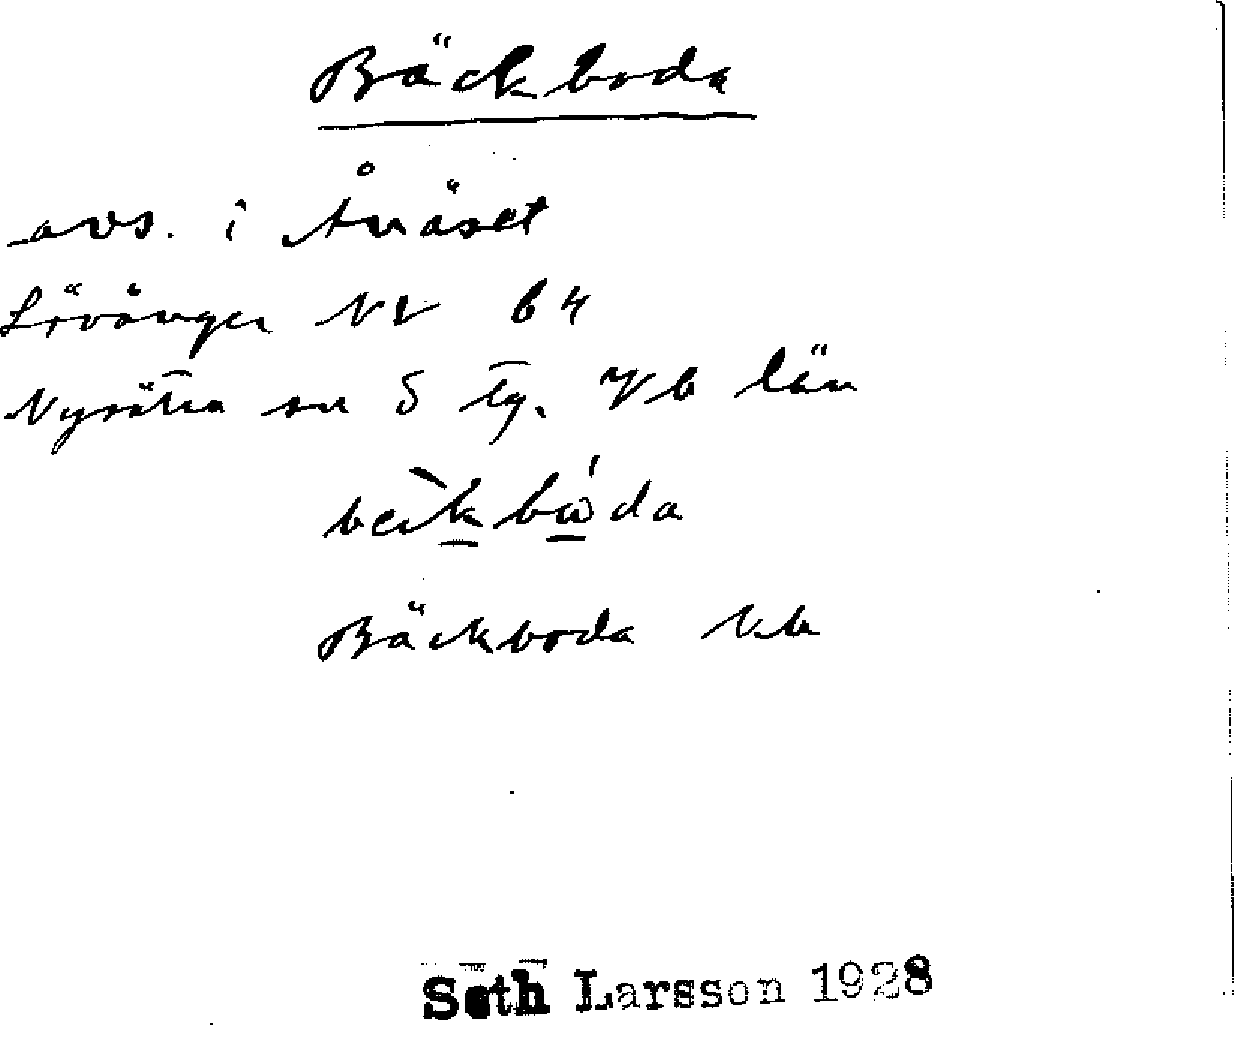 Bäckboda
avs. i Ånäset
Lövånger NV b 4
Nysätra sn S tg. Vb län
Bäckboda kb
Seth Larsson 1928